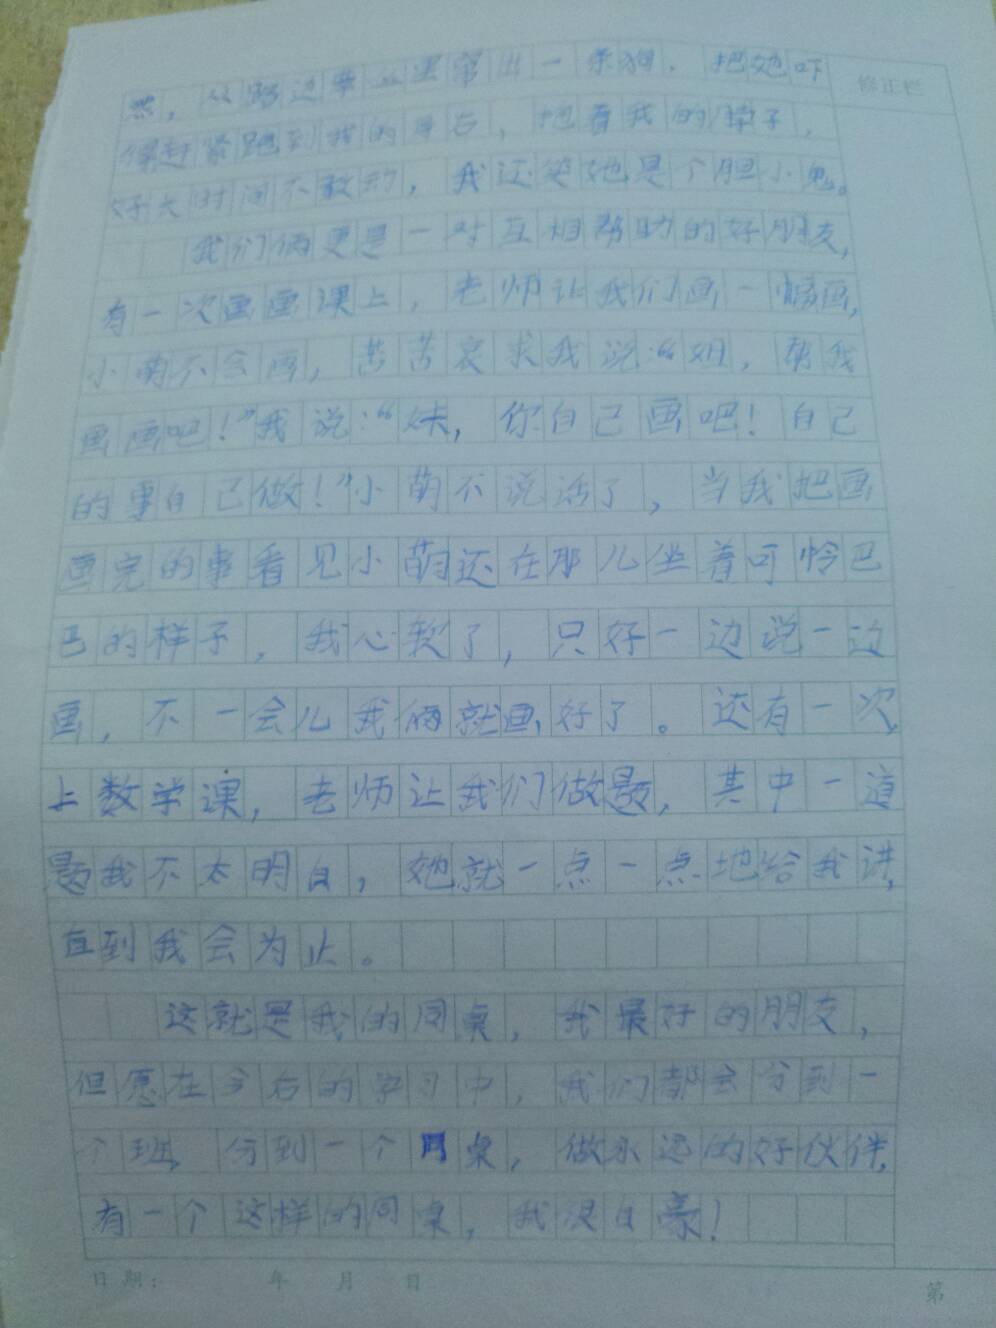 然，从路边草丛里窜出一条狗，把她吓 修正栏
得赶紧跑到我的身后，抱着我的脖子，
好长时间不敢动，我还笑她是个胆小鬼。
我们俩更是一对互相帮助的好朋友，
有一次画画课上，老师让我们画一幅画，
小萌不会画，苦苦哀求我说：“姐，帮我
画画吧！”我说：“妹，你自己画吧！自己
的事自己做！”小萌不说话了，当我把画
画完的事看见小萌还在那儿坐着可怜巴
巴的样子，我心软了，只好一边说一边
画，不一会儿我俩就画好了。还有一次，
上数学课，老师让我们做题，其中一道
题我不太明白，她就一点一点地给我讲，
直到我会为止。
这就是我的同桌，我最好的朋友，
但愿在今后的学习中，我们都会分到一
个班，分到一个同桌，做永远的好伙伴，
有一个这样的同桌，我很自豪！
日期： 年 月 日 第